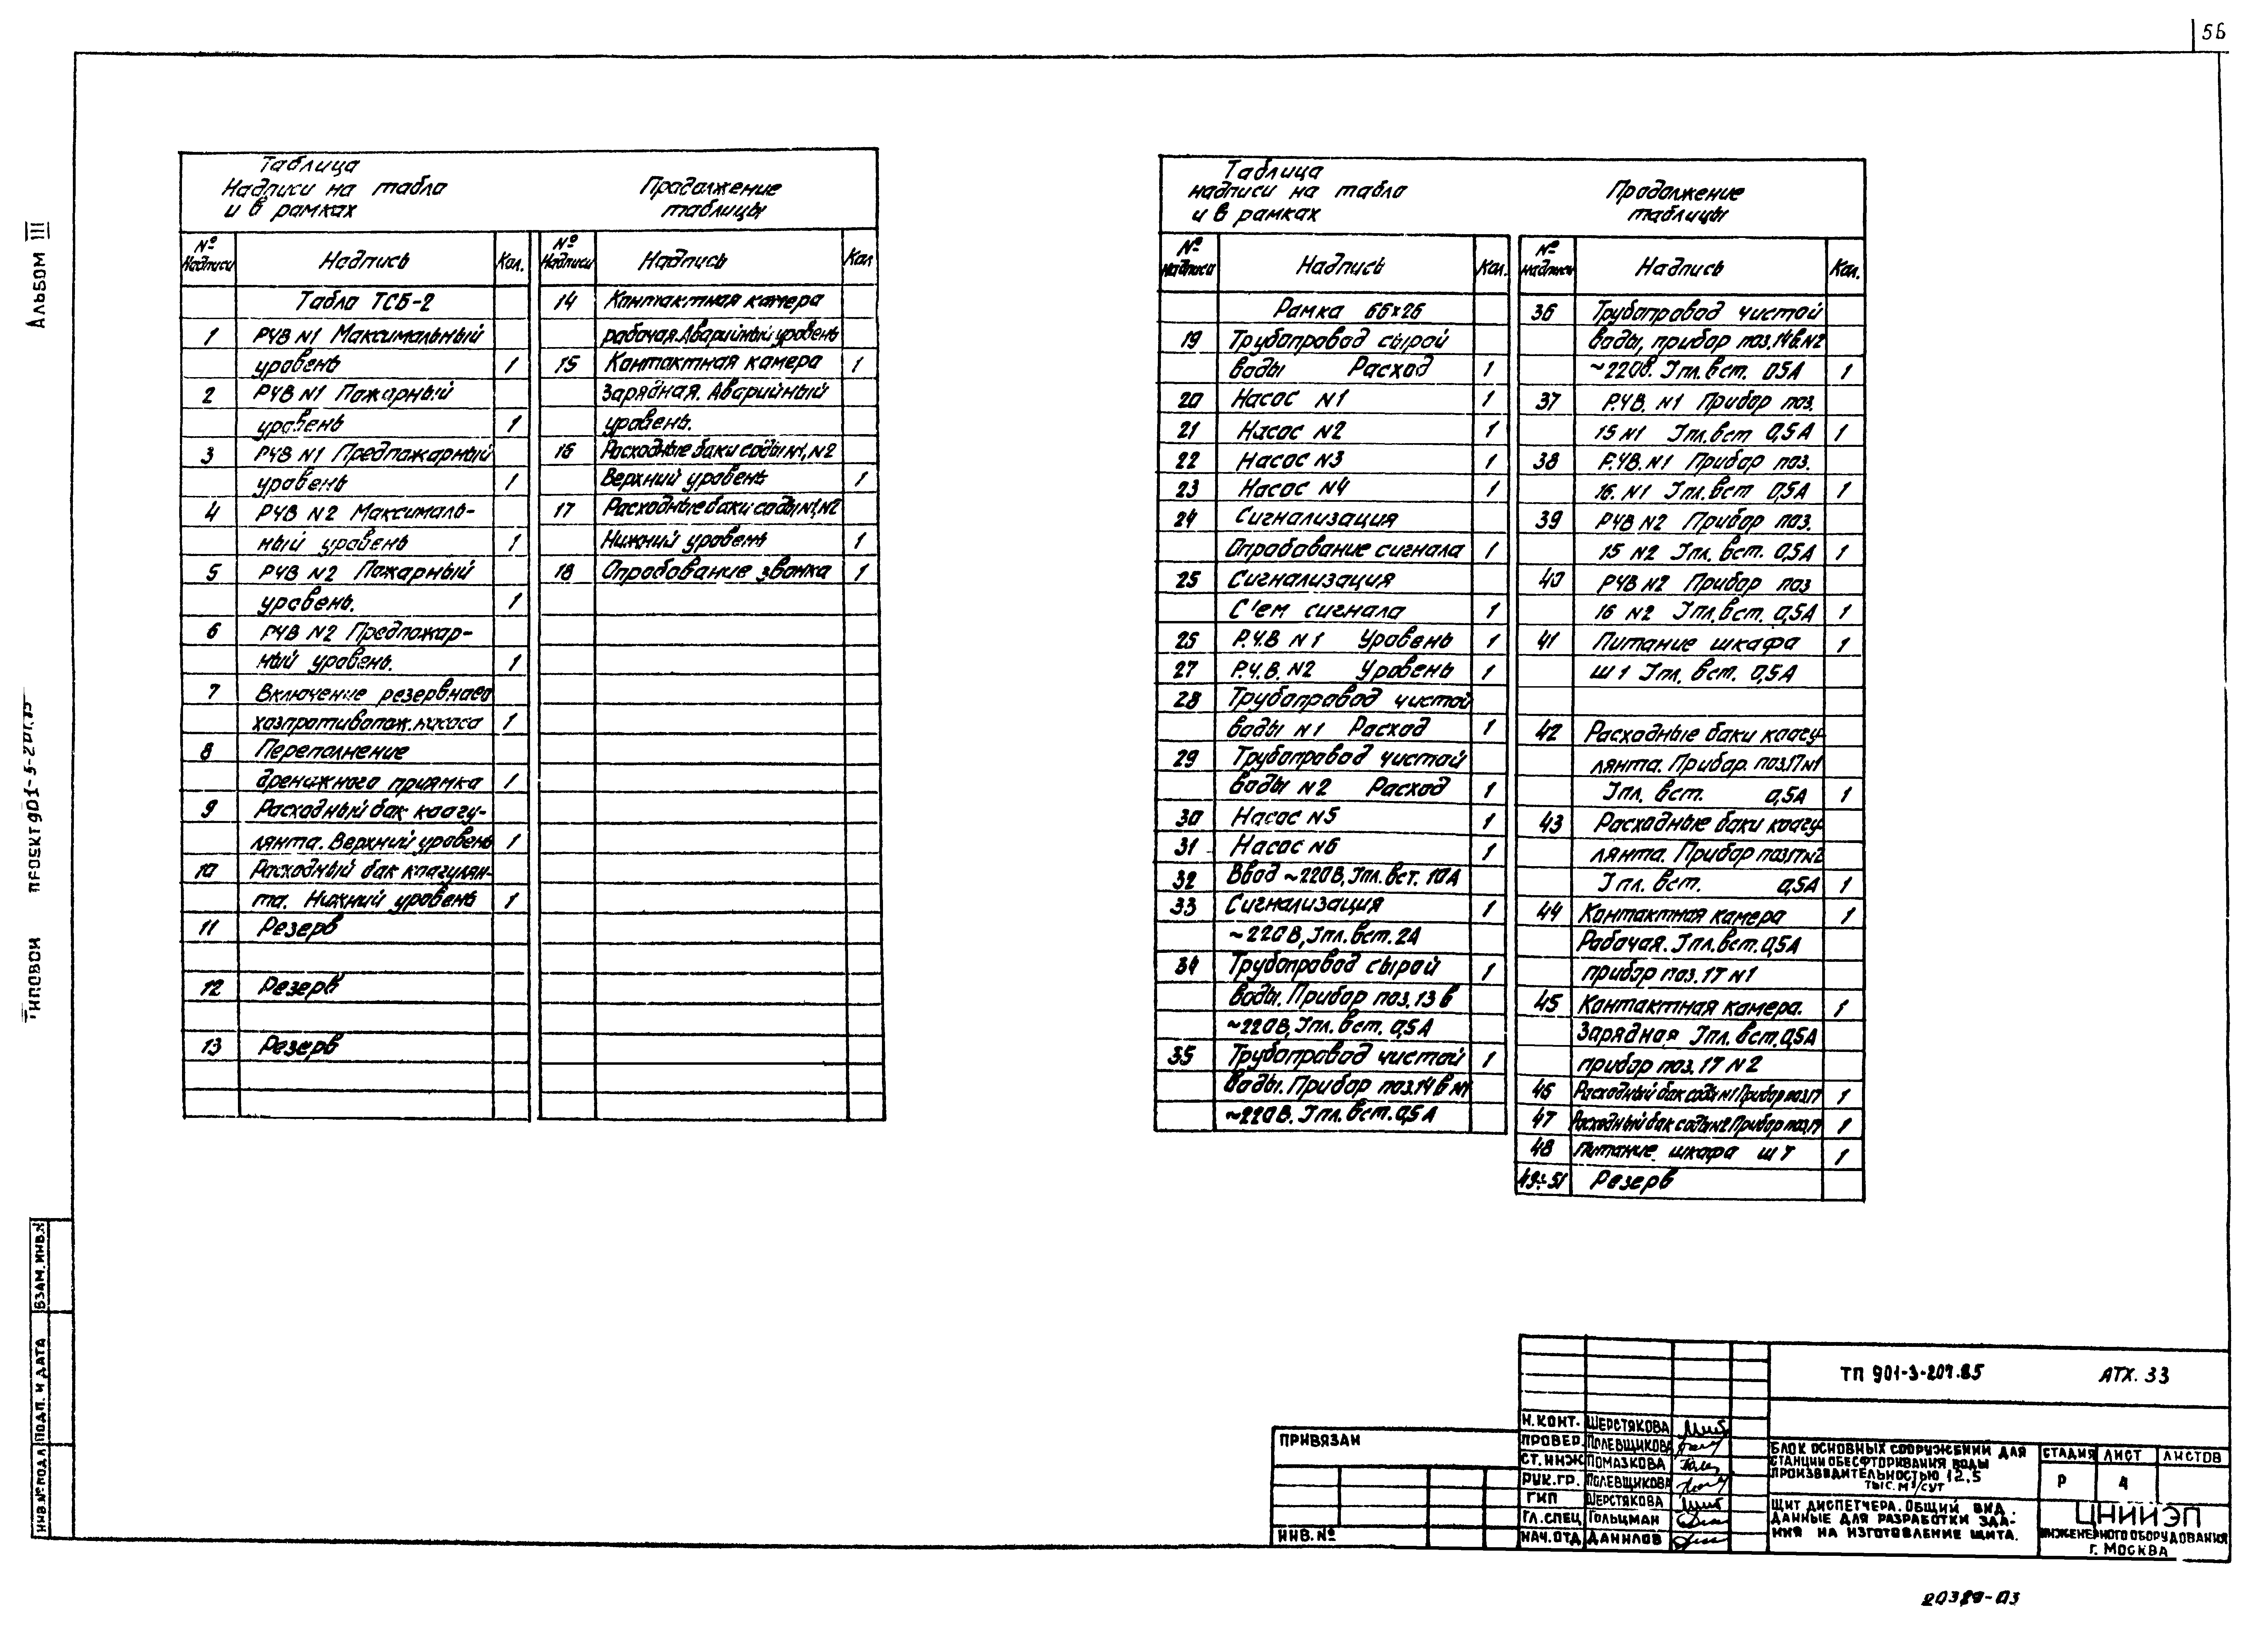 56
Альбом III
Типовой проект 901-3-201.85
Таблица
Надписи на табло
и в рамках
Продолжение
таблицы
№ надписи Надпись Кол.
Табло ТСБ-2
1 РЧВ N1 Максимальный
уровень 1
2 РЧВ N1 Пожарный
уровень 1
3 РЧВ N1 Предпожарный
уровень 1
4 РЧВ N2 Максималь-
ный уровень 1
5 РЧВ N2 Пожарный
уровень. 1
6 РЧВ N2 Предпожар-
ный уровень. 1
7 Включение резервного
хозпротивопож. насоса 1
8 Переполнение
дренажного приямка 1
9 Расходный бак коагу-
лянта. Верхний уровень 1
10 Расходный бак коагулян-
та. Нижний уровень 1
11 Резерв
12 Резерв
13 Резерв
№ надписи Надпись Кол
14 Контактная камера
рабочая. Аварийный уровень
15 Контактная камера 1
Зарядная. Аварийный
уровень.
16 Расходные баки соды N1, N2
Верхний уровень 1
17 Расходные баки соды N1, N2
Нижний уровень 1
18 Опробование звонка 1
Таблица
надписи на табло
и в рамках
Продолжение
таблицы
№ надписи Надпись Кол.
Рамка 66×26
19 Трубопровод сырой
воды Расход 1
20 Насос N1 1
21 Насос N2 1
22 Насос N3 1
23 Насос N4 1
24 Сигнализация
Опробование сигнала 1
25 Сигнализация
С'ем сигнала 1
26 Р.Ч.В N1 Уровень 1
27 Р.Ч.В. N2 Уровень 1
28 Трубопровод чистой
воды N1 Расход 1
29 Трубопровод чистой
воды N2 Расход 1
30 Насос N5 1
31 Насос N6 1
32 Ввод ~220В, Iпл. вст. 10А
33 Сигнализация 1
~220В, Iпл. вст. 2А
34 Трубопровод сырой 1
воды. Прибор поз. 13в
~220В, Iпл. вст. 0,5А
35 Трубопровод чистой 1
воды. Прибор поз. 14в N1
~220В. Iпл. вст. 0,5А
№ надписи Надпись Кол.
36 Трубопровод чистой
воды, прибор поз. 14в. N2
~220В. Iпл. вст. 05А 1
37 Р.ЧВ. N1 Прибор поз.
15 N1 Iпл. вст 0,5А 1
38 Р.ЧВ. N1 Прибор поз.
16. N1 Iпл. вст 0,5А 1
39 РЧВ N2 Прибор поз.
15 N2 Iпл. вст. 0,5А 1
40 РЧВ N2 Прибор поз
16 N2 Iпл. вст. 0,5А 1
41 Питание шкафа 1
Ш1 Iпл. вст. 0,5А
42 Расходные баки коагу-
лянта. Прибор. поз. 17 N1
Iпл. вст. 0,5А 1
43 Расходные баки коагу-
лянта. Прибор поз. 17 N2
Iпл. вст. 0,5А 1
44 Контактная камера 1
Рабочая. Iпл. вст. 0,5А
прибор поз. 17 N1
45 Контактная камера. 1
Зарядная Iпл. вст. 0,5А
прибор поз. 17 N2
46 Расходный бак соды N1 Прибор поз. 17 1
47 Расходный бак соды N2 Прибор поз. 17 1
48 Питание шкафа Ш7 1
49÷51 Резерв
ВЗАМ. ИНВ. N
ПОДП. И ДАТА
ИНВ. № ПОДЛ
ПРИВЯЗАН
ИНВ. №
ТП 901-3-201.85 АТХ. 33
Н. КОНТ. ШЕРСТЯКОВА
ПРОВЕР. ПОЛЕВЩИКОВА
СТ. ИНЖ ПОМАЗКОВА
РУК. ГР. ПОЛЕВЩИКОВА
ГИП ШЕРСТЯКОВА
ГЛ. СПЕЦ ГОЛЬЦМАН
НАЧ. ОТД ДАНИЛОВ
БЛОК ОСНОВНЫХ СООРУЖЕНИЙ ДЛЯ
СТАНЦИИ ОБЕСФТОРИВАНИЯ ВОДЫ
ПРОИЗВОДИТЕЛЬНОСТЬЮ 12,5
ТЫС. М³/СУТ
ЩИТ ДИСПЕТЧЕРА. ОБЩИЙ ВИД.
ДАННЫЕ ДЛЯ РАЗРАБОТКИ ЗДА-
НИЯ НА ИЗГОТОВЛЕНИЕ ЩИТА.
СТАДИЯ ЛИСТ ЛИСТОВ
Р 4
ЦНИИЭП
ИНЖЕНЕРНОГО ОБОРУДОВАНИЯ
Г. МОСКВА